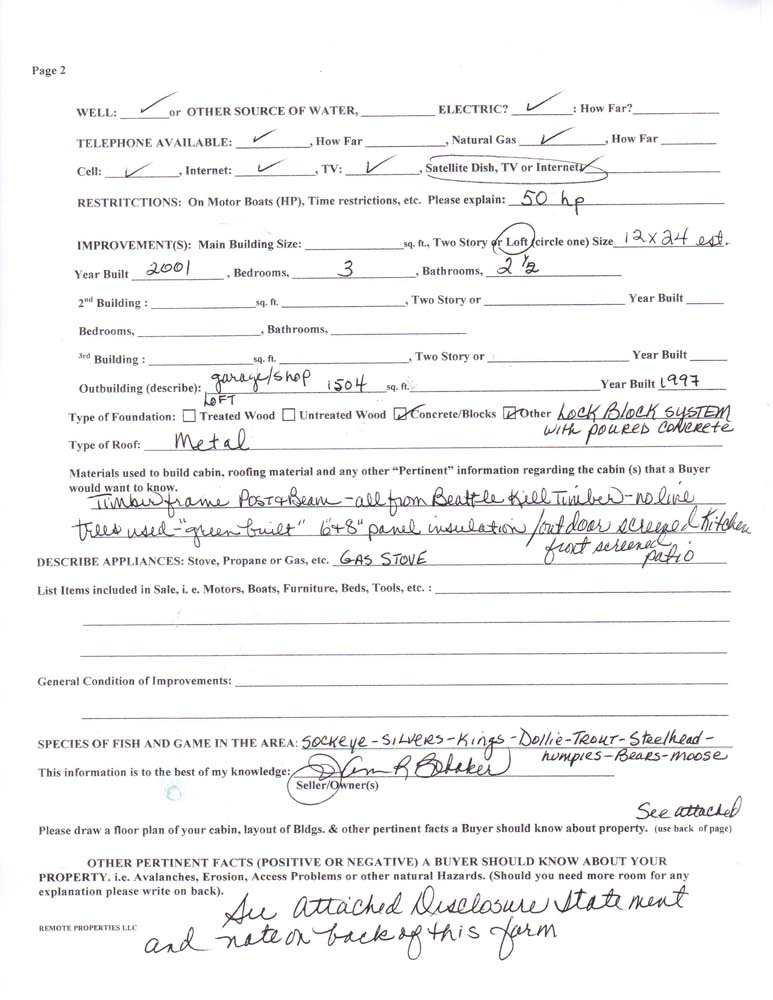 Page 2
WELL: ✓ or OTHER SOURCE OF WATER, ____________ ELECTRIC? ✓ : How Far? ____________
TELEPHONE AVAILABLE: ✓ , How Far ____________ , Natural Gas ✓ , How Far ________
Cell: ✓ , Internet: ✓ , TV: ✓ , Satellite Dish, TV or Internet ✓
RESTRITCTIONS: On Motor Boats (HP), Time restrictions, etc. Please explain: 50 hp
IMPROVEMENT(S): Main Building Size: ____________ sq. ft., Two Story or Loft (circle one) Size 12x24 est.
Year Built 2001 , Bedrooms, 3 , Bathrooms, 2 ½
2nd Building : ____________ sq. ft. ____________ , Two Story or ____________ Year Built ______
Bedrooms, ____________ , Bathrooms, ____________
3rd Building : ____________ sq. ft. ____________ , Two Story or ____________ Year Built ______
Outbuilding (describe): garage/shop 1504 sq. ft. Year Built 1997
LOFT
Type of Foundation: ☐ Treated Wood ☐ Untreated Wood ☑ Concrete/Blocks ☑ Other LOCK BLOCK SYSTEM
WITH POURED CONCRETE
Type of Roof: Metal
Materials used to build cabin, roofing material and any other “Pertinent” information regarding the cabin (s) that a Buyer
would want to know.
Timberframe Post & Beam - all from Beattle Kill Timber - no live
trees used - "green built" 6+8" panel insulation / outdoor screened Kitchen
front screened
patio
DESCRIBE APPLIANCES: Stove, Propane or Gas, etc. GAS STOVE
List Items included in Sale, i. e. Motors, Boats, Furniture, Beds, Tools, etc. : ____________
General Condition of Improvements: ____________
SPECIES OF FISH AND GAME IN THE AREA: Sockeye - SILVERS - Kings - Dollie - TROUT - Steelhead -
humpies - Bears - moose
This information is to the best of my knowledge:
Seller/Owner(s)
See attached
Please draw a floor plan of your cabin, layout of Bldgs. & other pertinent facts a Buyer should know about property. (use back of page)
OTHER PERTINENT FACTS (POSITIVE OR NEGATIVE) A BUYER SHOULD KNOW ABOUT YOUR
PROPERTY. i.e. Avalanches, Erosion, Access Problems or other natural Hazards. (Should you need more room for any
explanation please write on back).
See attached Disclosure Statement
and note on back of this form
REMOTE PROPERTIES LLC